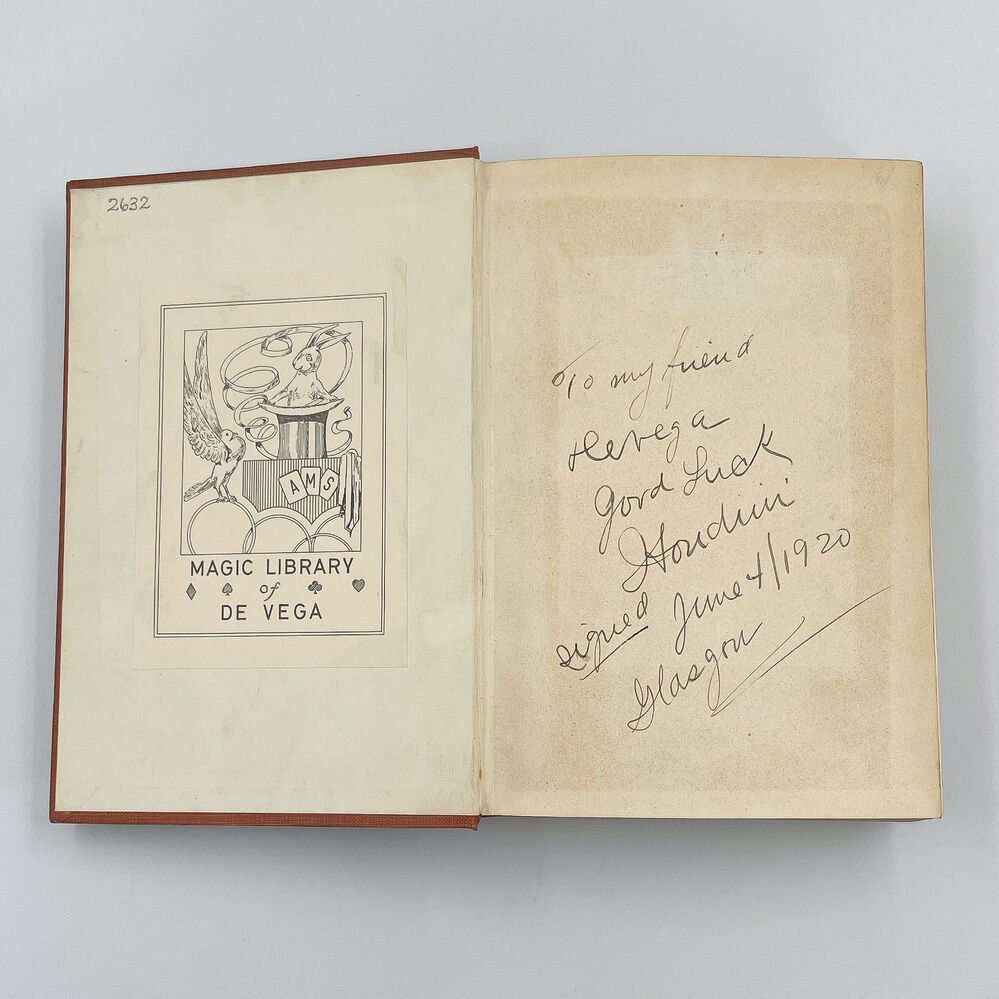 2632
AMS
MAGIC LIBRARY
of
DE VEGA
To my friend
Devega
Good Luck
Houdini
signed June 4/1920
Glasgow